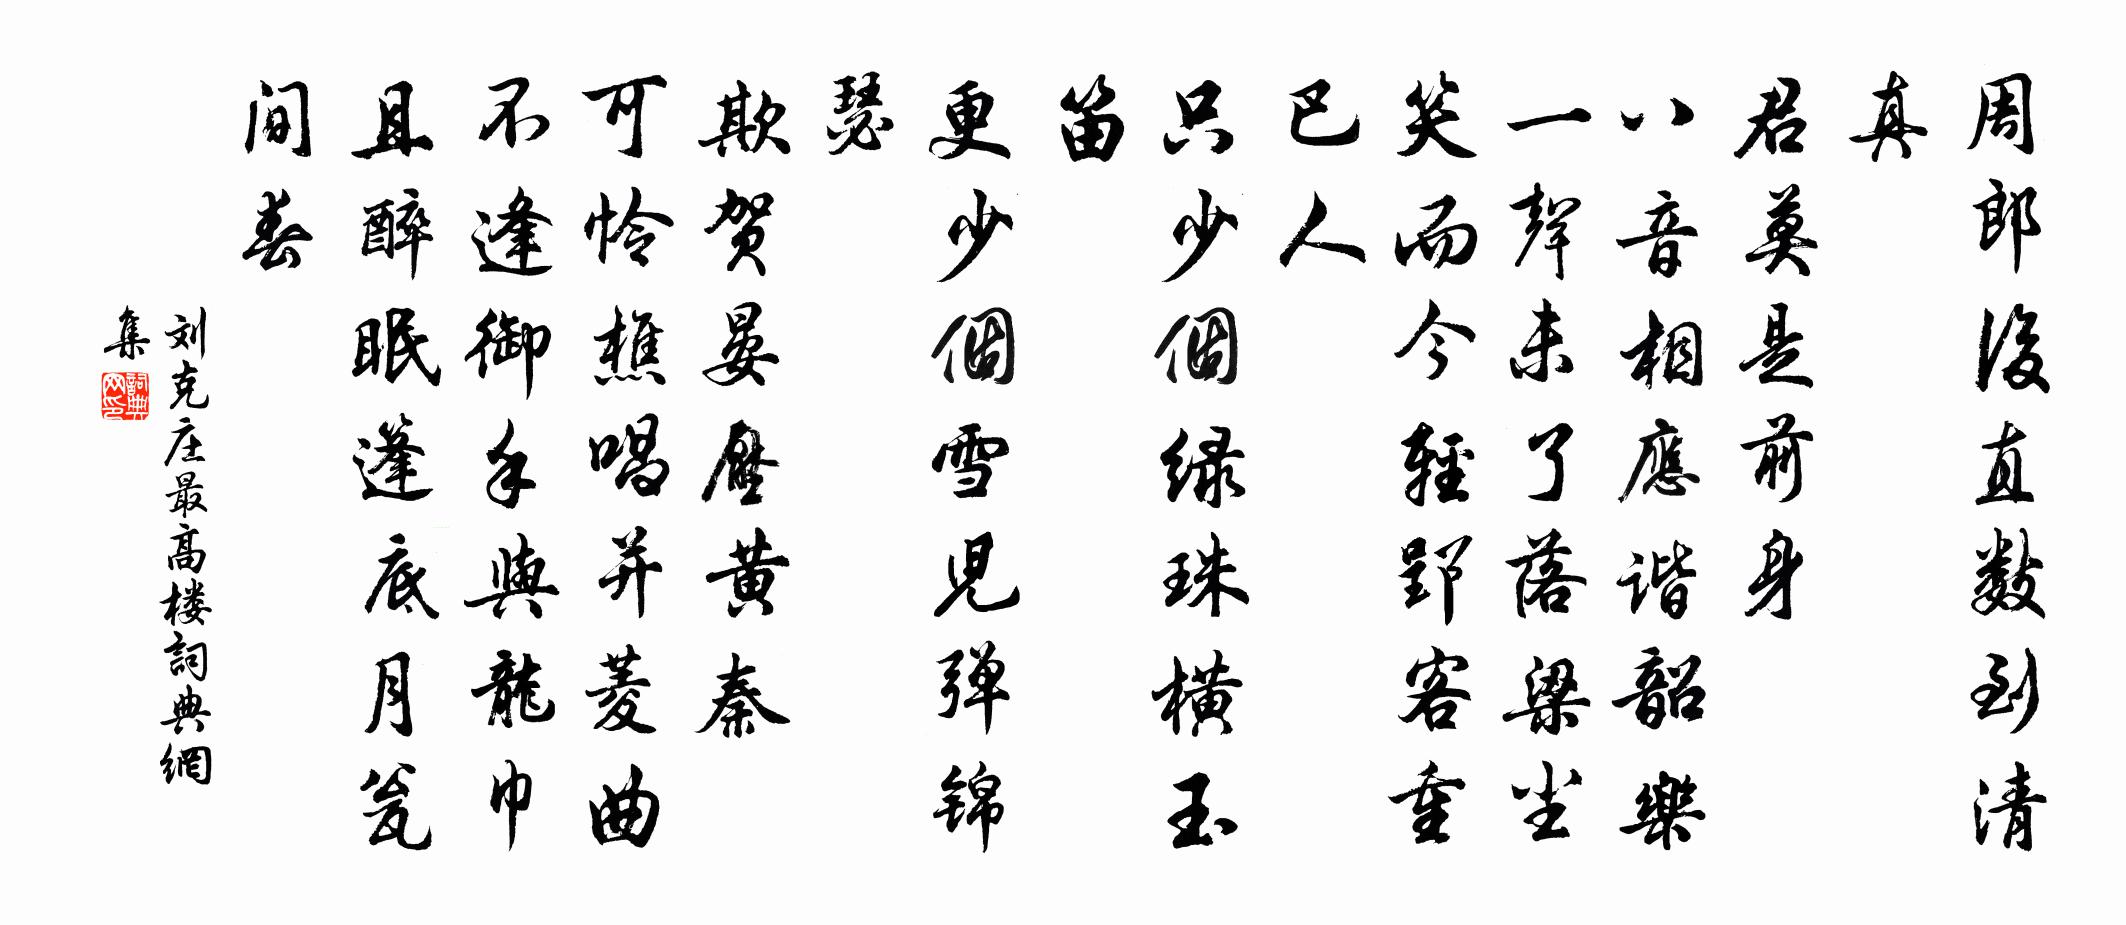 周郎後直数到清
真
君莫是前身
八音相應谐韶樂
一聲未了落梁尘
笑而今輕郢客重
巴人
只少個绿珠横玉
笛
更少個雪兒弹锦
瑟
欺贺晏壓黄秦
可怜樵唱并菱曲
不逢御手與龍巾
且醉眠篷底月瓮
间春
刘克庄最高楼詞典網
集
詞典网印